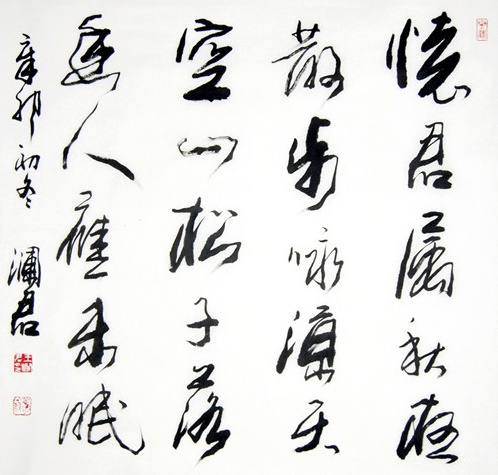 懷君屬秋夜
散步咏涼天
空山松子落
幽人應未眠
辛卯初冬 瀾君